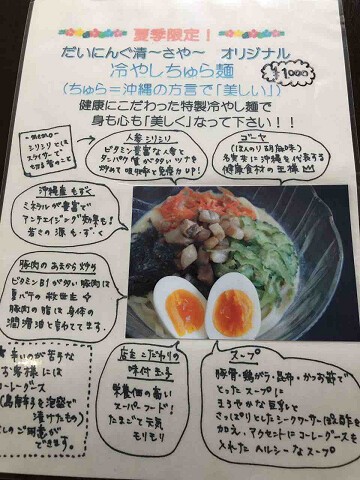 夏季限定！
だいにんぐ清〜さや〜 オリジナル
冷やしちゅら麺
¥1000
(ちゅら＝沖縄の方言で「美しい」)
健康にこだわった特製冷やし麺で
身も心も「美しく」なって下さい！！
-memo-
シリシリとは
スライサーで
切る音のこと
人参シリシリ
ビタミン豊富な人参と
タンパク質が多いツナを
炒めて吸収率と免疫力UP！
ゴーヤ
(ほんのり胡麻味)
名実共に沖縄を代表する
健康食材の王様
沖縄産もずく
ミネラルが豊富で
アンチエイジング効果も！
若さの源も・ず・く
豚肉の甘辛炒め
ビタミンB1が多い豚肉は
夏バテの救世主
豚肉の脂は身体の
潤滑油と言われてます。
店主こだわりの
味付玉子
栄養価の高い
スーパーフード！
たまごで元気
モリモリ
スープ
豚骨・鶏ガラ・昆布・かつお節で
とったスープに
まろやかな豆乳と
さっぱりとしたシークワーサー
加え、アクセントにコーレーグースを
入れたヘルシーなスープ
お客様には
コーレーグース
(島唐辛子を泡盛で
漬けたもの)
のご用意が
できます。